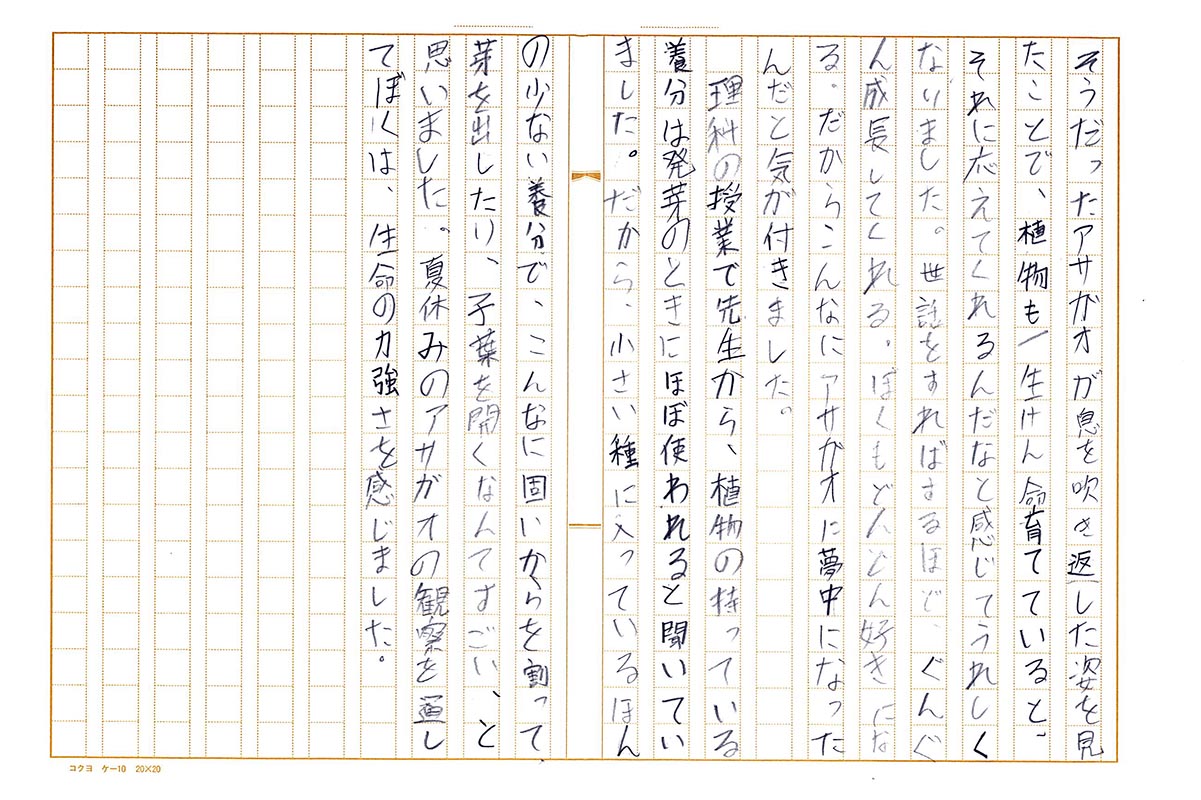 そうだったアサガオが息を吹き返した姿を見
たことで、植物も一生けん命育てていると、
それに応えてくれるんだなと感じてうれしく
なりました。世話をすればするほど、ぐんぐ
ん成長してくれる。ぼくもどんどん好きにな
る。だからこんなにアサガオに夢中になった
んだと気が付きました。
理科の授業で先生から、植物の持っている
養分は発芽のときにほぼ使われると聞いてい
ました。だから、小さい種に入っているほん
の少ない養分で、こんなに固いからを割って、
芽を出したり、子葉を開くなんてすごい、と
思いました。夏休みのアサガオの観察を通し
てぼくは、生命の力強さを感じました。
コクヨ ケー10 20×20